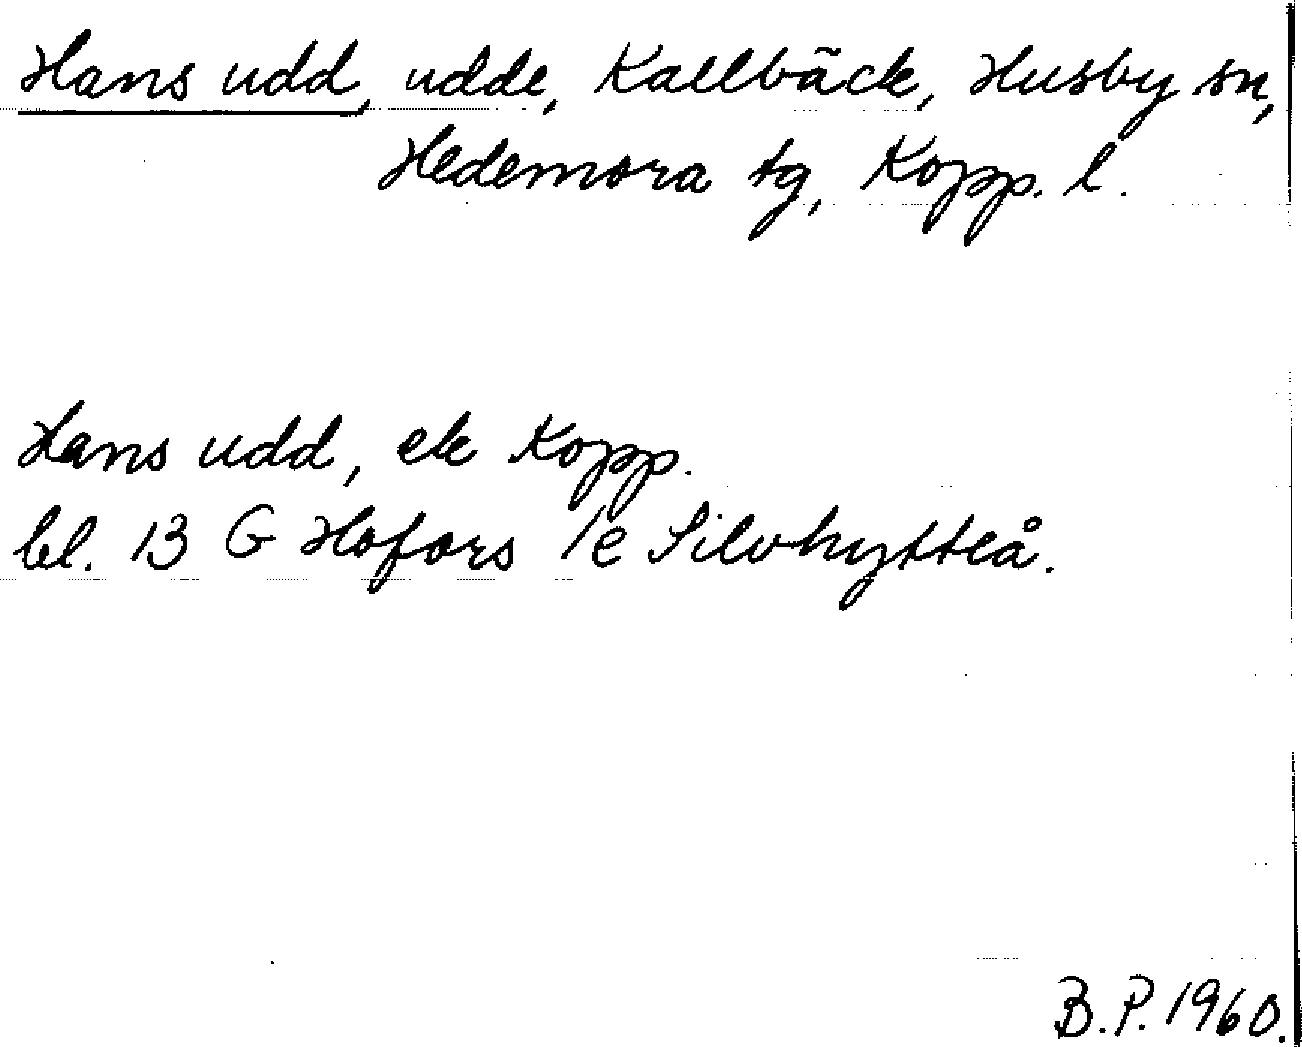 Hans udd, udde, Kallbäck, Husby sn,
Hedemora tg, Kopp. l.
Hans udd, ek Kopp.
bl. 13 G Hofors /e Silvhytteå.
B.P. 1960.